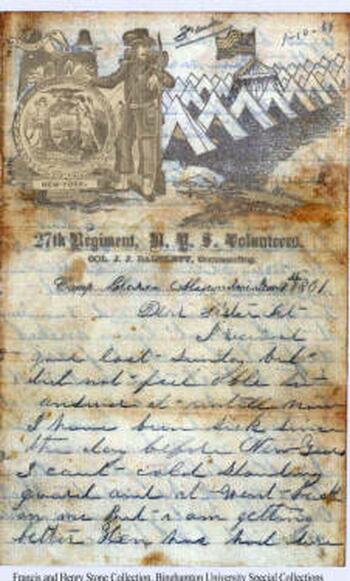 NEW-YORK.
27th Regiment, N. Y. S. Volunteers.
COL. J. J. BARTLETT, Commanding.
Camp 1861
Dear Sister
I received
your last Sunday but
did not feel able to
answer it until now
I have been sick since
the day before New Years
I caut cold standing
guard and it went hard
on me but I am getting
better then has had
Francis and Henry Stone Collection, Binghamton University Special Collections